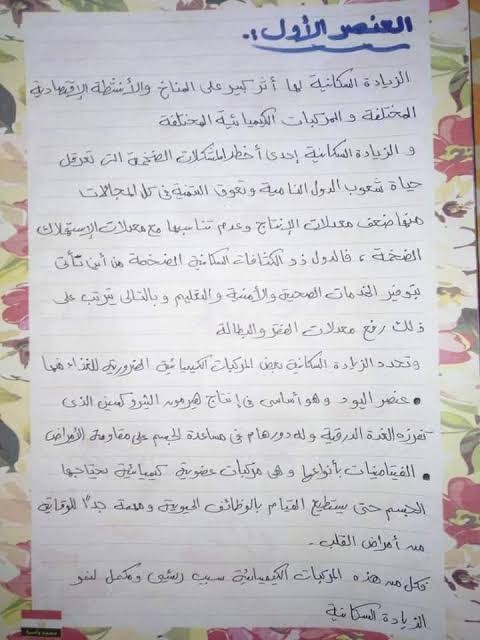 العنصر الأول :.
الزيادة السكانية لها أثر كبير على المناخ والأنشطة الإقتصادية
المختلفة و المركبات الكيميائية المختلفة
و الزيادة السكانية إحدى أخطر المشكلات الضخمة التى تعرقل
حياة شعوب الدول النامية وتعوق التنمية فى كل المجالات
منها ضعف معدلات الإنتاج وعدم تناسبها مع معدلات الإستهلاك
الضخمة ، فالدول ذو الكثافات السكانية الضخمة من أين تأتى
بتوفير الخدمات الصحية والأمنية و التعليم و بالتالى يترتب على
ذلك رفع معدلات الفقر والبطالة
وتحدد الزيادة السكانية بعض المركبات الكيميائية الضرورية للغذاء هما
• عنصر اليود وهو أساسى فى إنتاج هيرمون الثيروكسين الذى
تفرزه الغدة الدرقية وله دور هام فى مساعدة الجسم على مقاومة الأمراض
• الفيتامينات بأنواعها وهى مركبات عضوية كيميائية يحتاجها
الجسم حتى يستطيع القيام بالوظائف الحيوية و مهمة جدًا للوقاية
من أمراض القلب .
فكل من هذه المركبات الكيميائية سبب رئيسى ومكمل لنمو
الزيادة السكانية